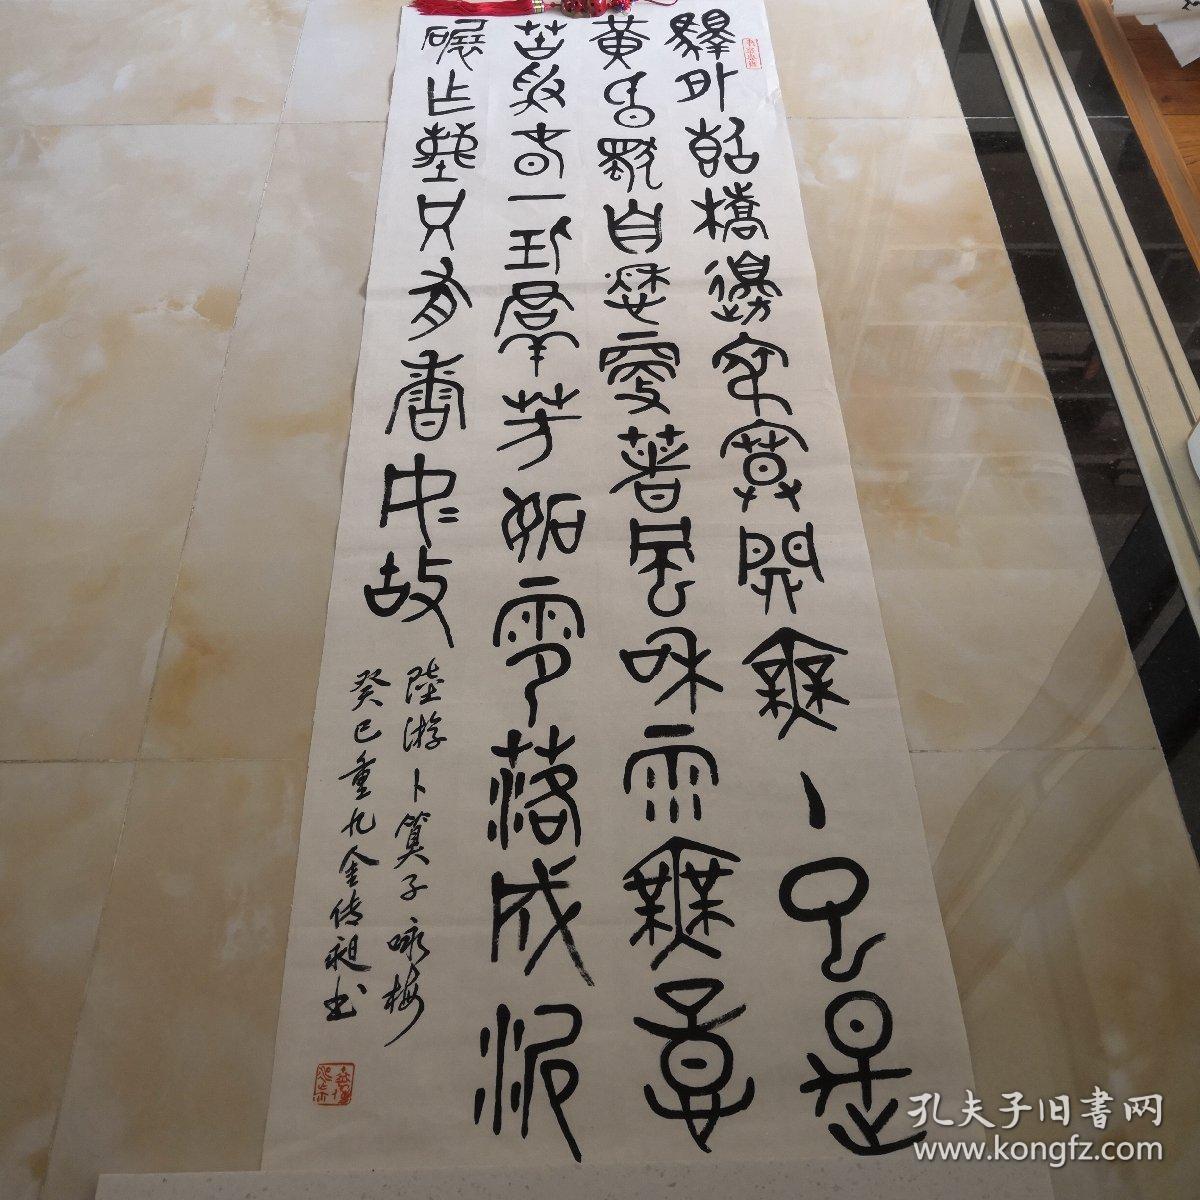 驛外斷橋邊寂寞開無主已是
黄昏獨自愁更著風和雨無意
苦爭春一任羣芳妬零落成泥
碾作塵只有香如故
陸游卜算子咏梅
癸巳重九金传昶书
孔夫子旧書网
www.kongfz.com